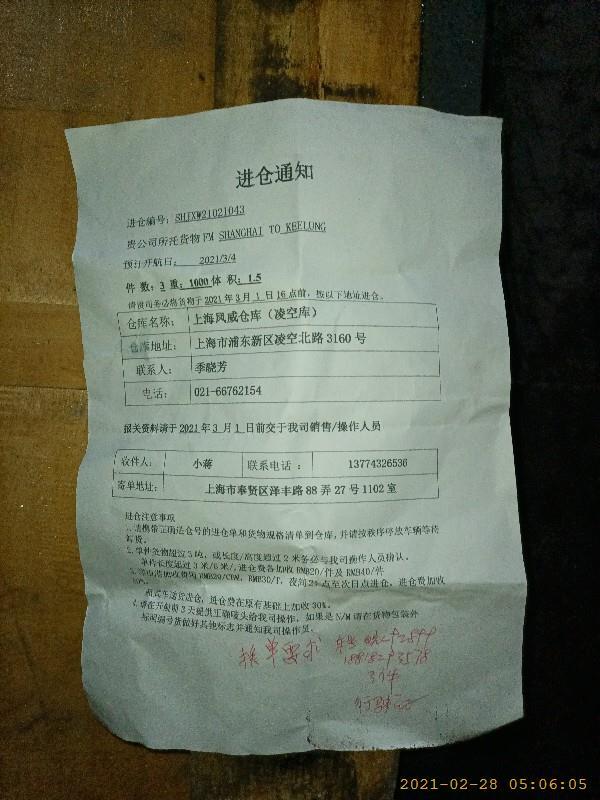 进仓通知
进仓编号：SHJXW21021043
贵公司所托货物 FM SHANGHAI TO KEELUNG
预订开航日： 2021/3/4
件 数：3 重：1000 体 积：1.5
请贵司务必将货物于 2021 年 3 月 1 日 16 点前，按以下地址进仓。
仓库名称： 上海风威仓库（凌空库）
仓库地址： 上海市浦东新区凌空北路 3160 号
联系人： 季晓芳
电话： 021-66762154
报关资料请于 2021 年 3 月 1 日前交于我司销售/操作人员
收件人： 小蒋 联系电话： 13774326536
寄单地址： 上海市奉贤区泽丰路 88 弄 27 号 1102 室
进仓注意事项
1.请携带正确进仓号的进仓单和货物规格清单到仓库，并请按秩序停放车辆等待
卸货。
2.单件货物超过 3 吨，或长度/高度超过 2 米务必与我司操作人员确认。
单件长度超过 3 米/6 米/，进仓费各加收 RMB20/件及 RMB40/件
RMB20/CBM, RMB30/T, 夜间 21 点至次日点进仓，进仓费加收
送货进仓，进仓费在原有基础上加收 30%。
4.请在开船前 3 天提供正确唛头给我司操作，如果是 N/M 请在货物包装外
与 编号货做好其他标志并通知我司操作员。
换单要求
3件
行驶证
2021-02-28 05:06:05